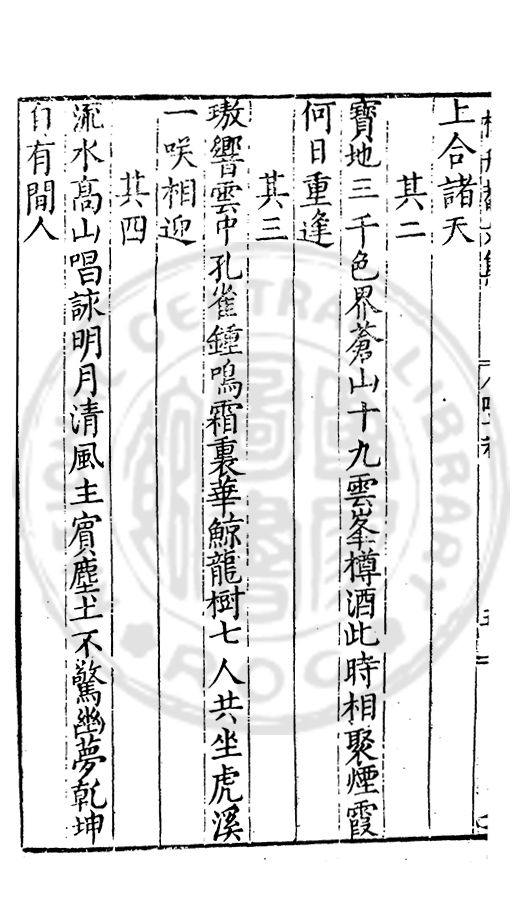 上合諸天
其二
寶地三千色界蒼山十九雲峯樽酒此時相聚煙霞
何日重逢
其三
璈響雲中孔雀鍾鳴霜裏華鯨龍樹七人共坐虎溪
一咲相迎
其四
流水髙山唱詠明月清風主賓塵土不驚幽夢乾坤
自有閒人
CENTRAL LIBRARY